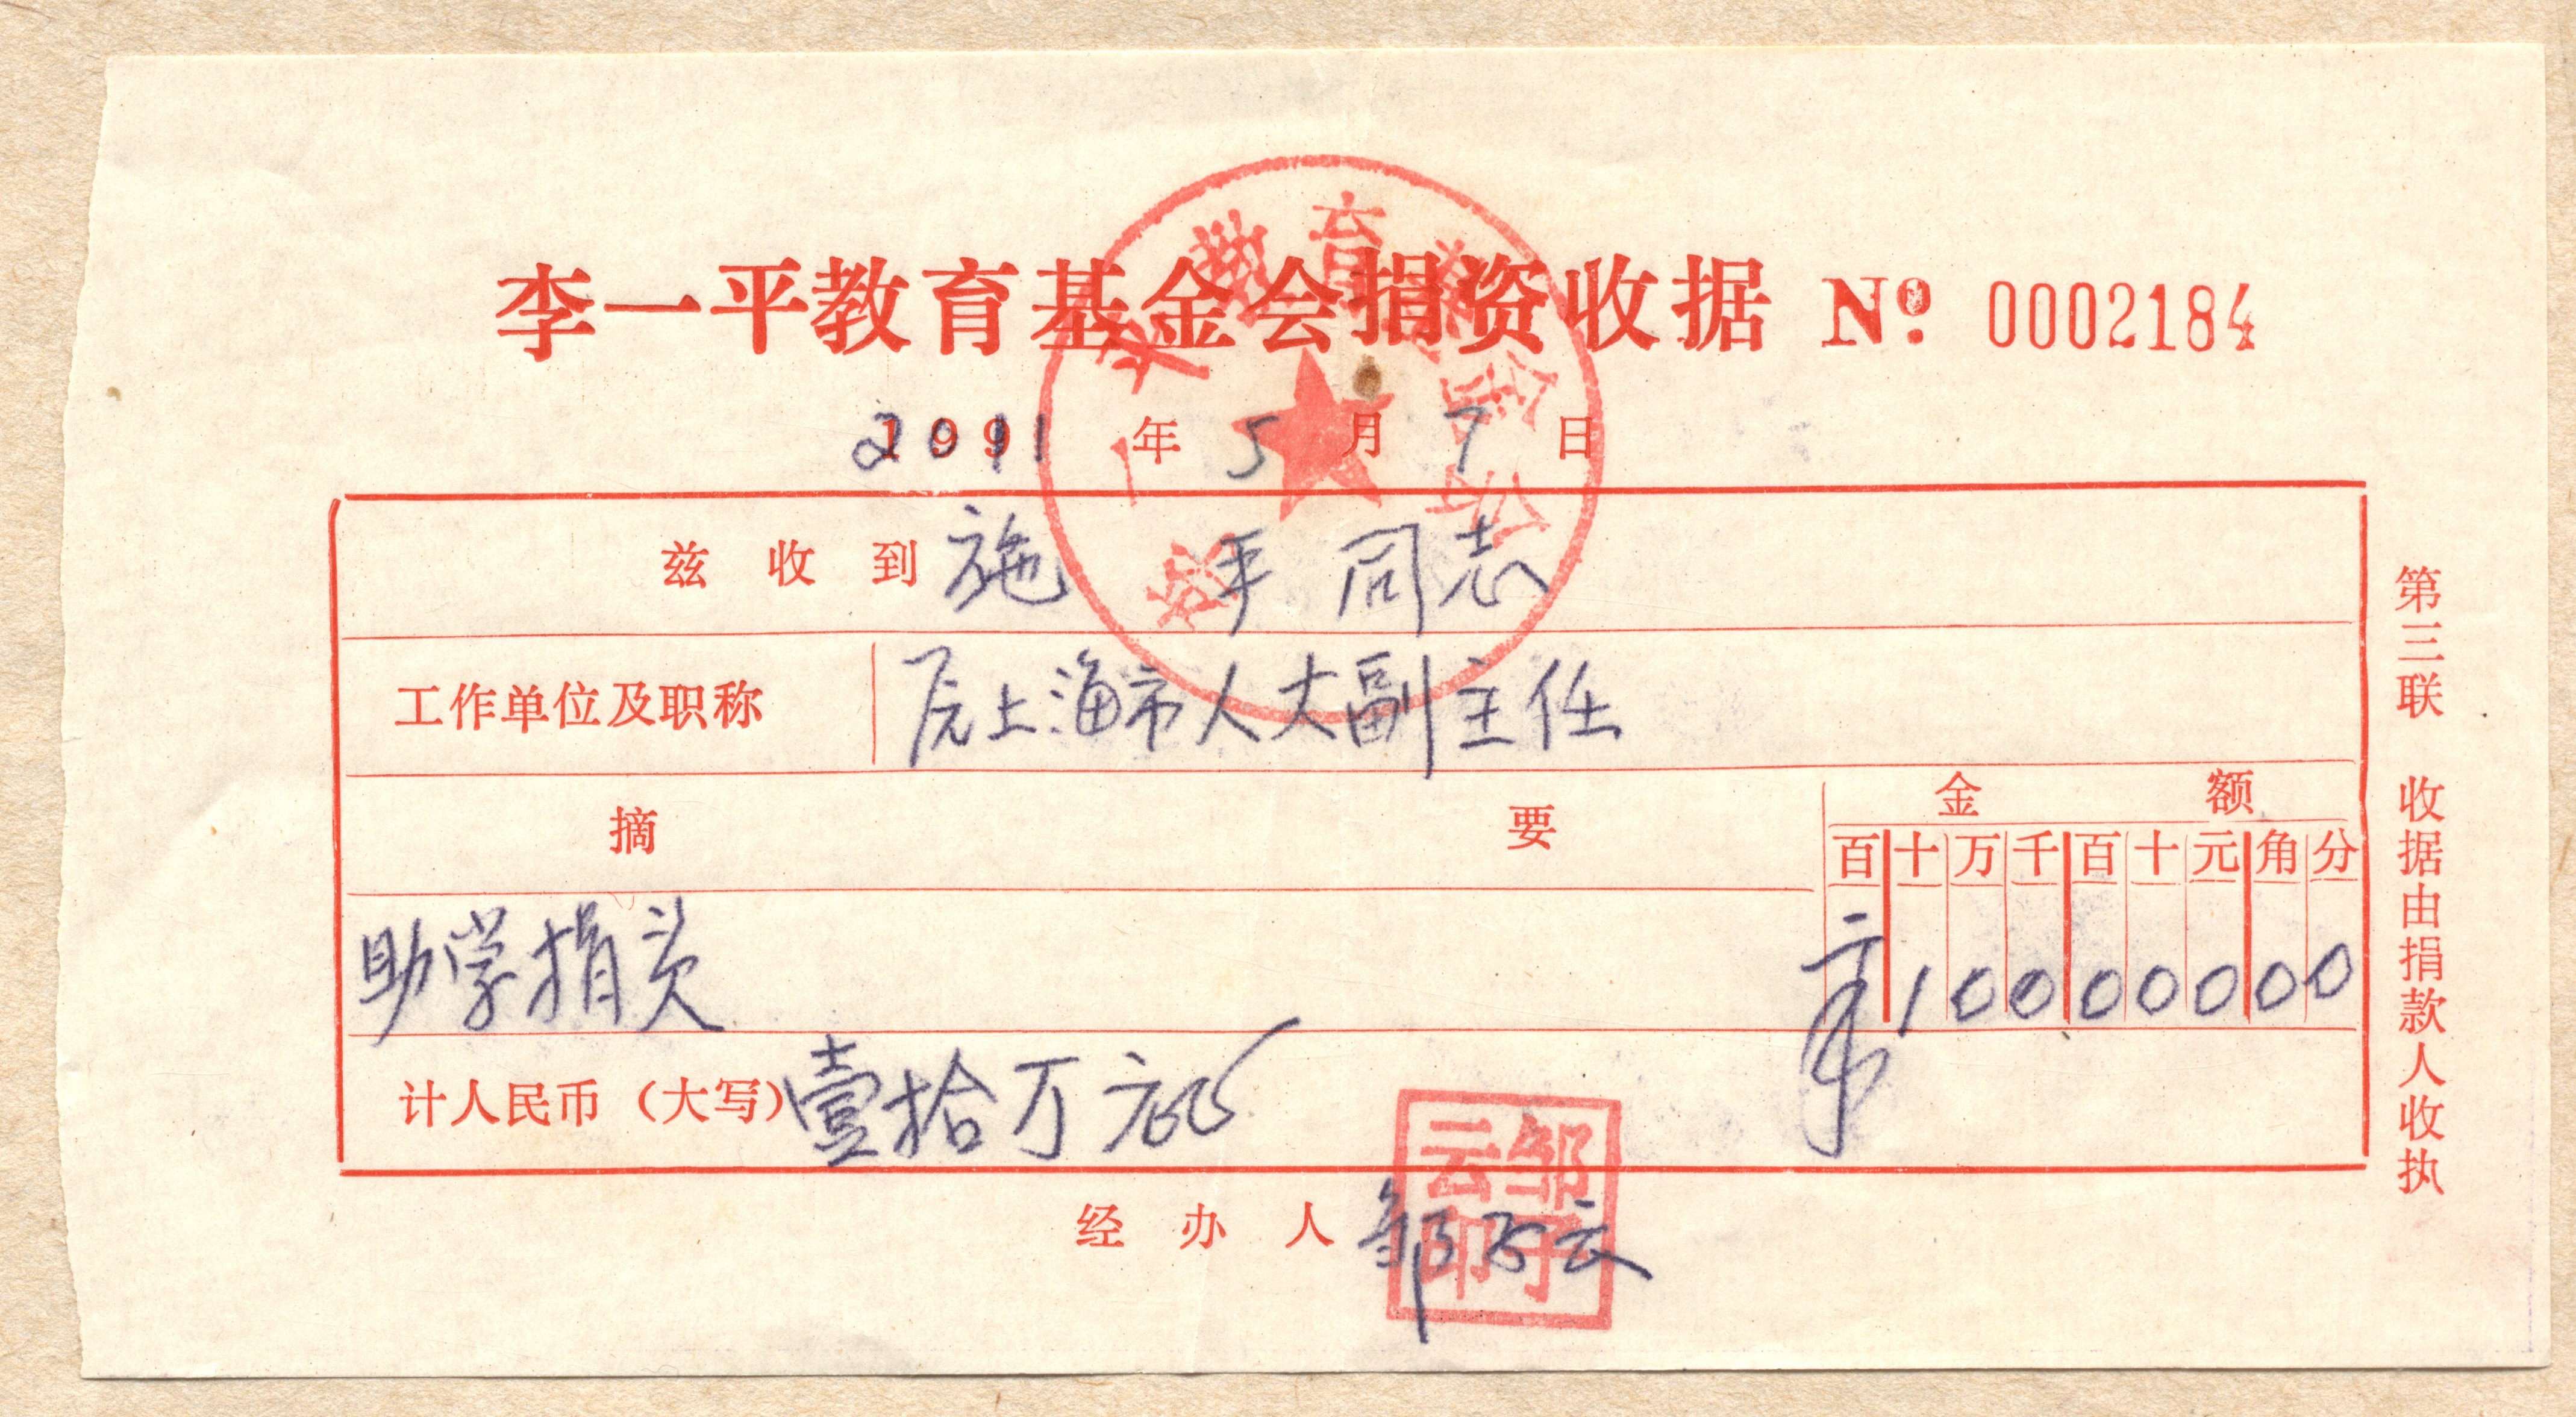 李一平教育基金会捐资收据 Nº 0002184
2011年5月7日
兹收到 施平同志
工作单位及职称 原上海市人大副主任
摘要 金额
百十万千百十元角分
助学捐资
10000000
计人民币（大写）壹拾万元正
经办人 邹子云
邹子云印
第三联 收据由捐款人收执